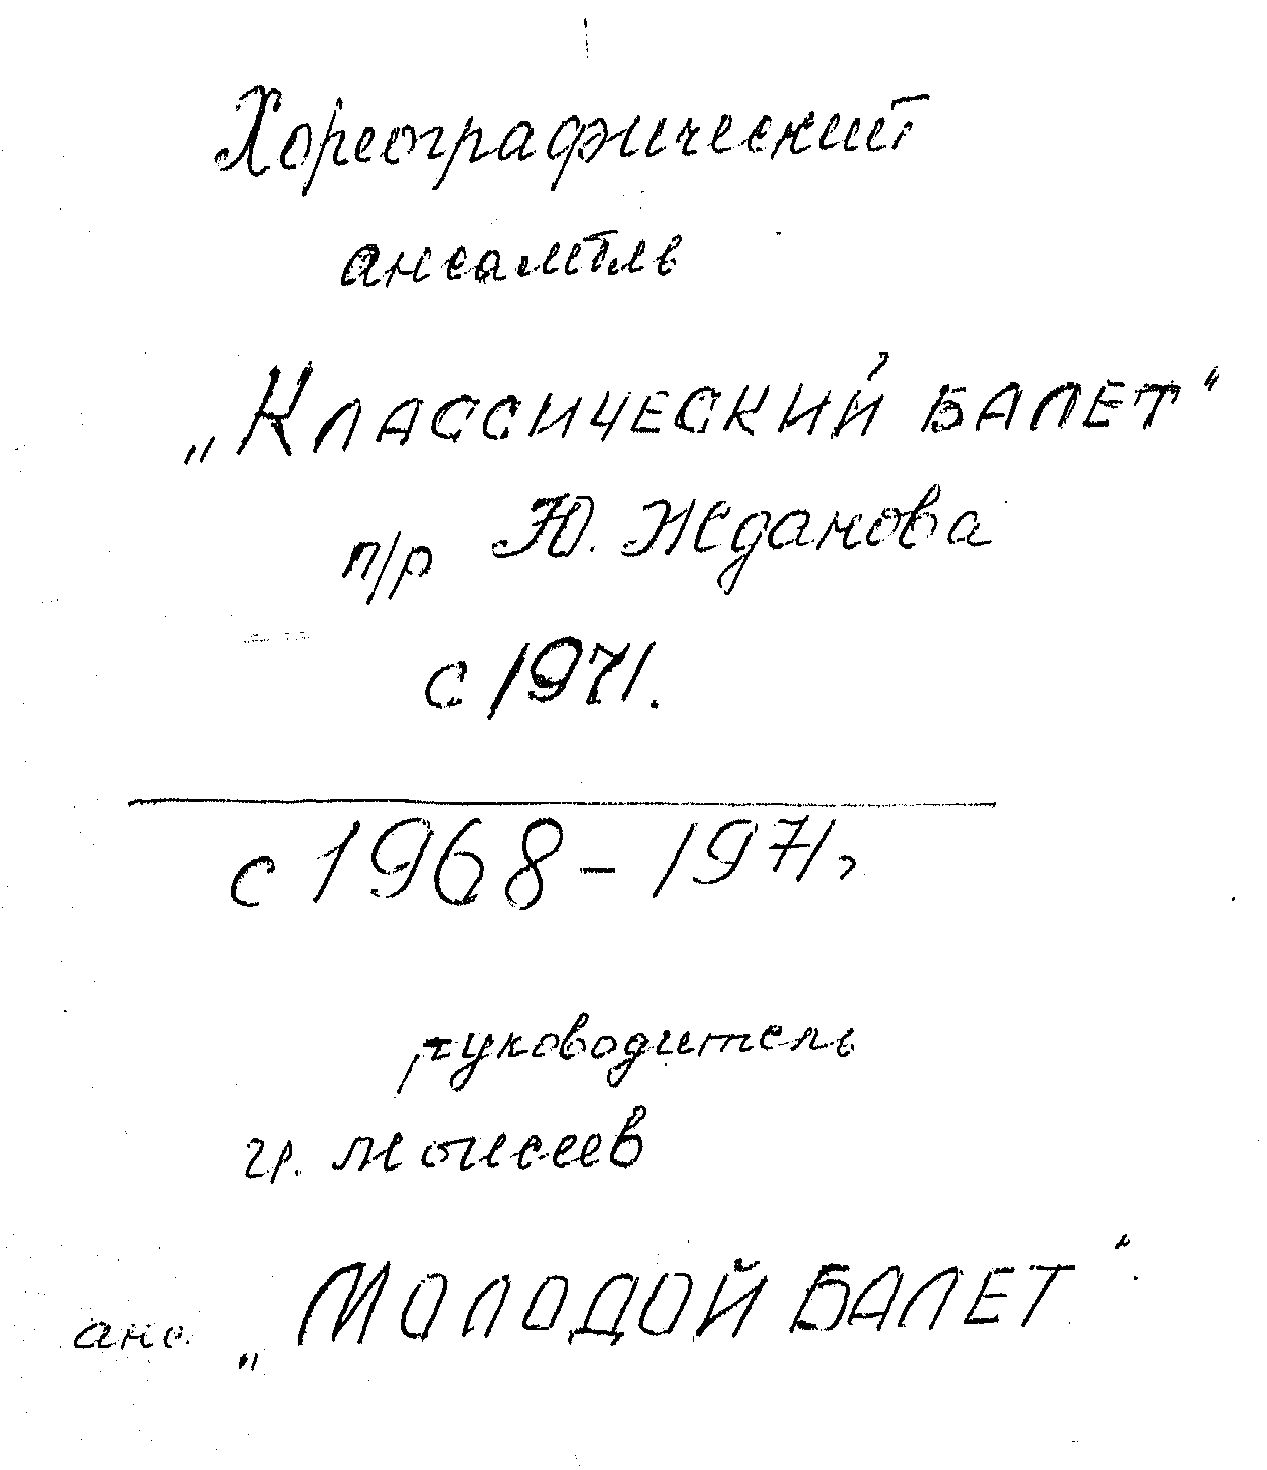 Хореографический
ансамбль
„Классический балет“
п/р Ю. Жданова
с 1971.
с 1968 – 1971г
руководитель
гр. Моисеев
анс. „Молодой балет“